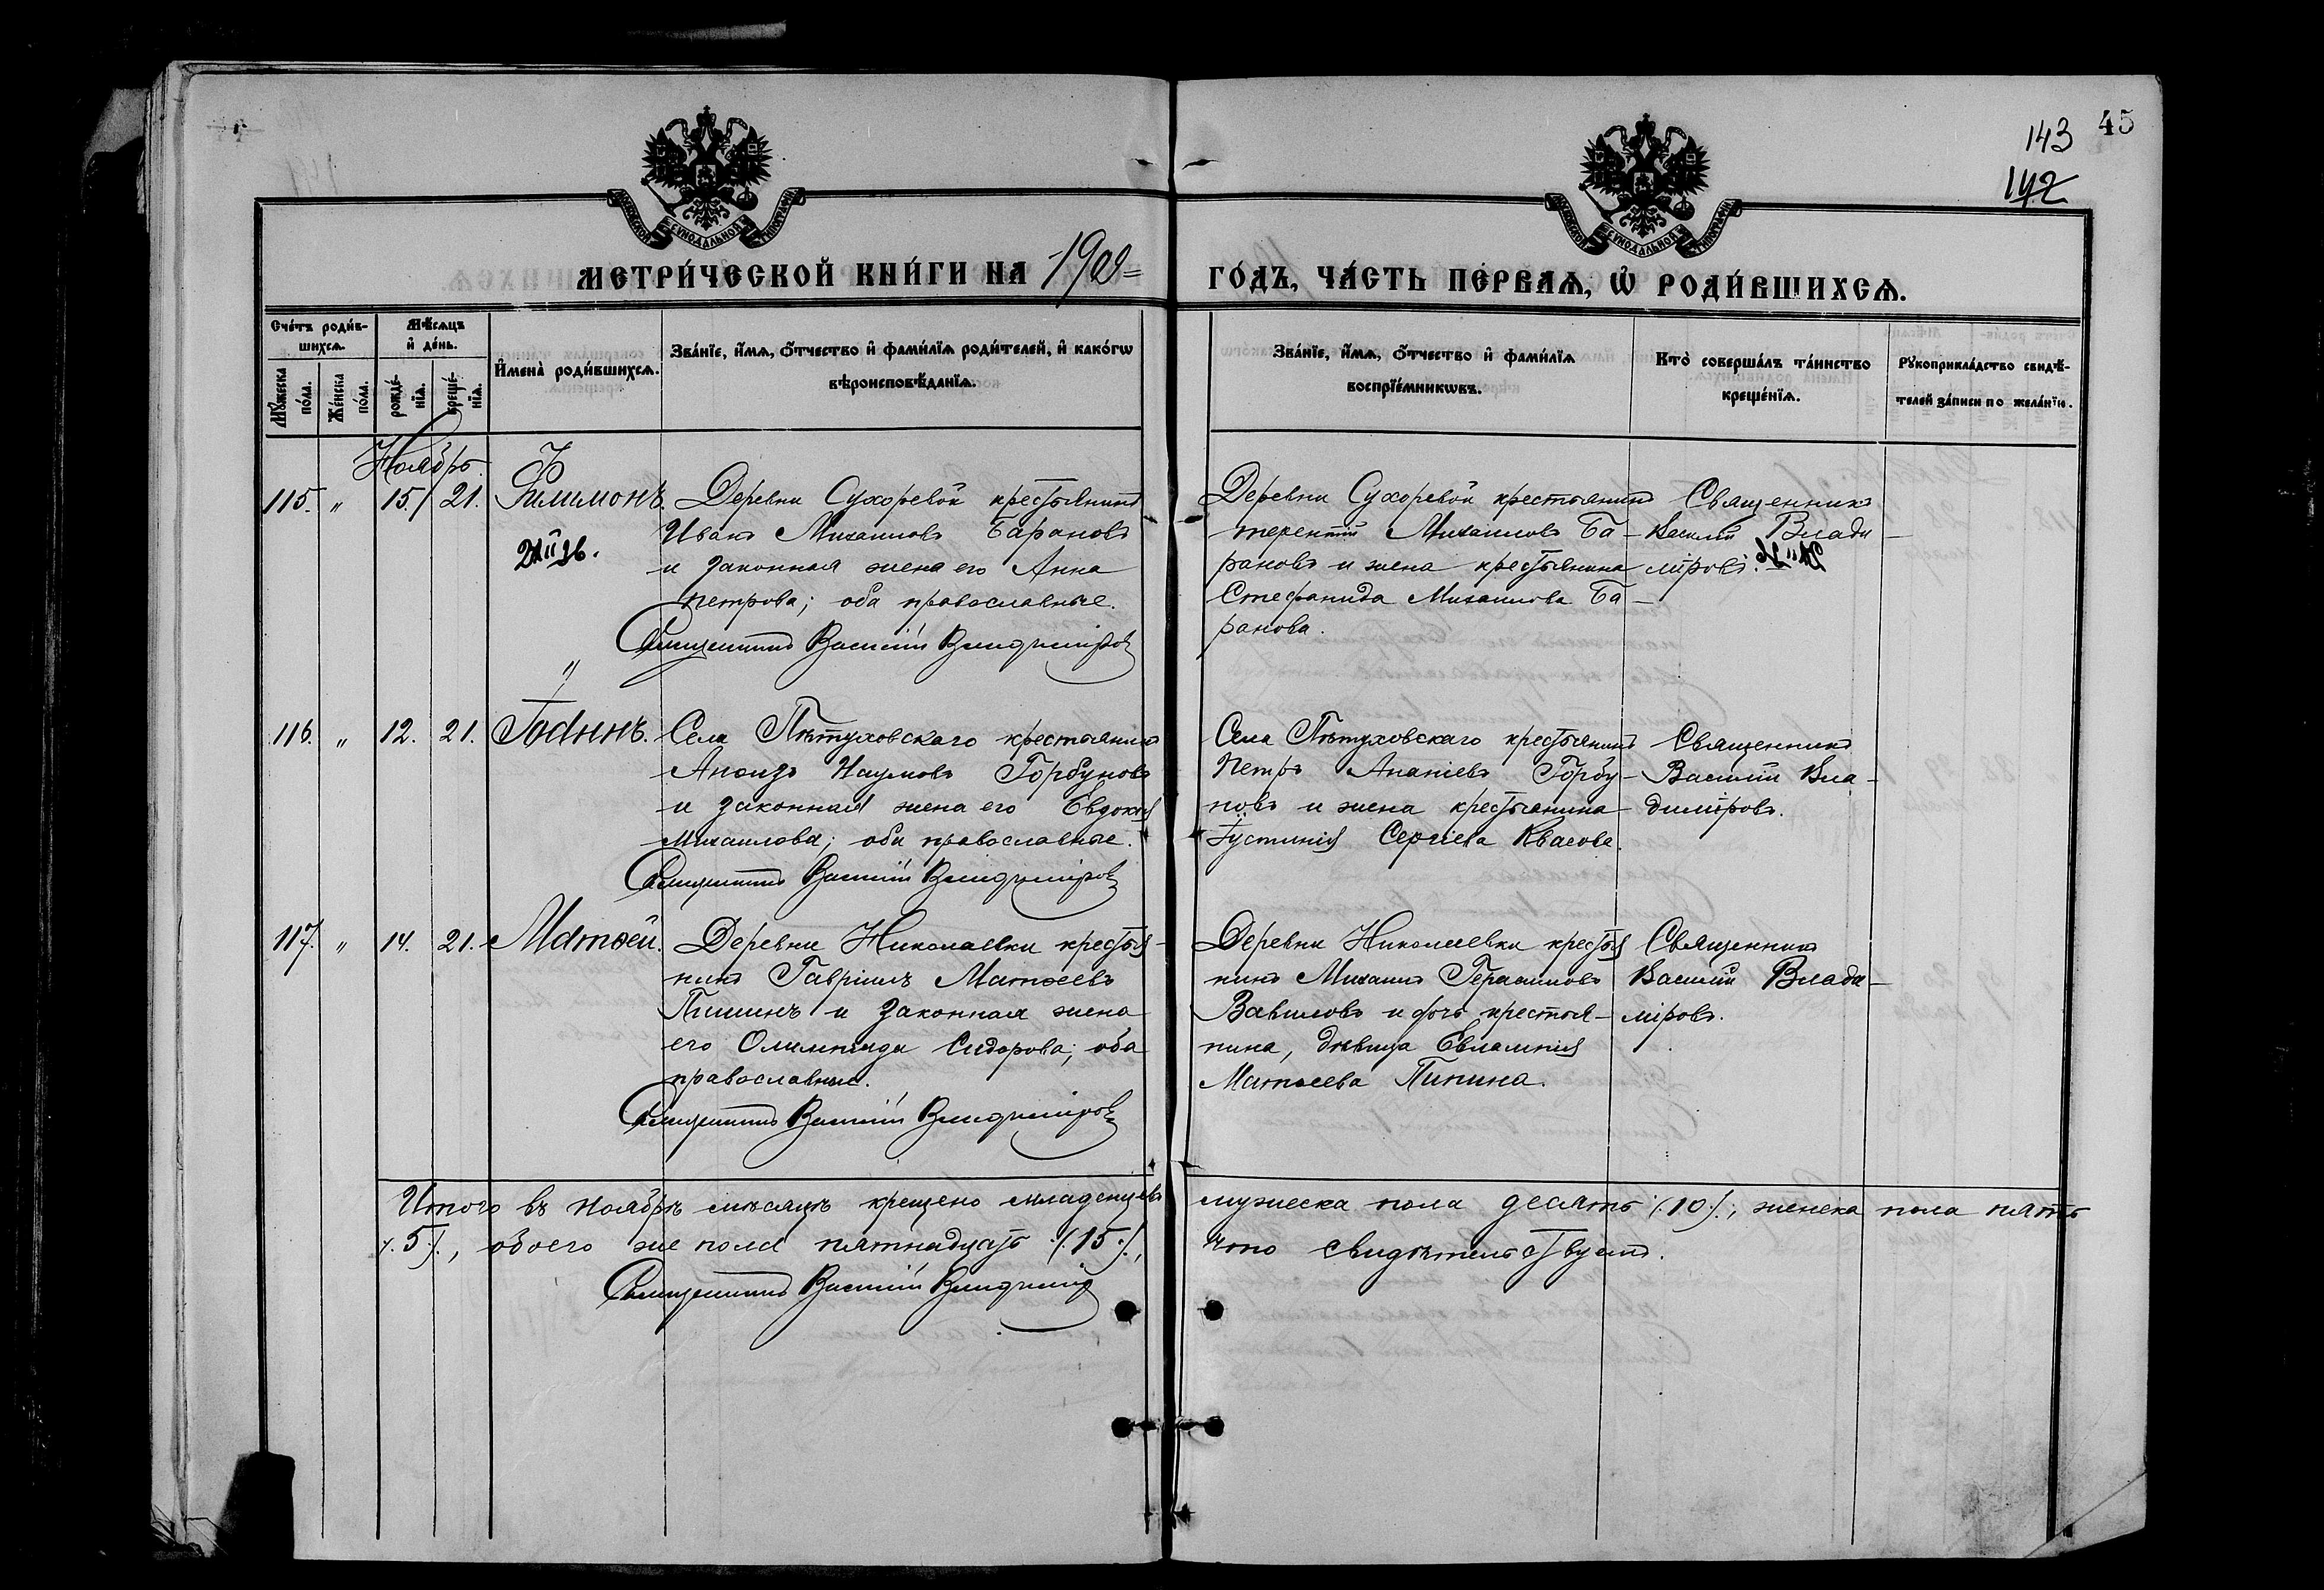 45
143
142
МОСКОВСКОЙ СѴНОДАЛЬНОЙ ТИПОГРАФІИ
МОСКОВСКОЙ СѴНОДАЛЬНОЙ ТИПОГРАФІИ
МЕТРИ́ЧЕСКОЙ КНИ́ГИ НА
ГО́ДЪ, ЧА́СТЬ ПЕ́РВАѦ, Ѽ РОДИ́ВШИХСѦ.
Сче́тъ роди́в-
шихсѧ.
Мѣ́сѧцъ
и҆ де́нь.
Мꙋ́жеска по́ла.
Же́нска по́ла.
рожде́-
нїѧ.
креще́-
нїѧ.
И҆мена̀ роди́вшихсѧ.
Зва́нїе, и҆́мѧ, ѻ҆́тчество и҆ фами́лїѧ роди́телей, и҆ како́гѡ
вѣроисповѣ́данїѧ.
Зва́нїе, и҆́мѧ, ѻ҆́тчество и҆ фами́лїѧ
воспрїе́мникѡвъ.
Кто̀ соверша́лъ та́инство
креще́нїѧ.
Рꙋкоприкла́дство свидѣ́-
телей за́писи по жела́нїю.
Ноябрь.
115. " 15. 21. Филимонъ.
Деревни Сухоревой крестьянинъ
Иванъ Михаиловъ Барановъ
и законная жена его Анна
Петрова; оба православные.
Священникъ Василій Владиміровъ
Деревни Сухоревой крестьянинъ
Терентій Михаиловъ Ба-
рановъ и жена крестьянина
Стефанида Михаилова Ба-
ранова.
Священникъ
Василій Влади-
міровъ.
116. " 12. 21.
Села Пѣтуховскаго крестьянинъ
Наумовъ Горбуновъ
и законная жена его Евдокія
Михаилова; оба православные.
Священникъ Василій Владиміровъ
Села Пѣтуховскаго крестьянинъ
Петръ Ананіевъ Горбу-
новъ и жена крестьянина
Іустинія Сергіева Квасова.
Священникъ
Василій Вла-
диміровъ.
117. " 14. 21. Матѳей.
Деревни Николаевки крестья-
нинъ Гавріилъ Матѳеевъ
и законная жена
его Олимпіада Сидорова; оба
православные.
Священникъ Василій Владиміровъ
Деревни Николаевки крестья
нинъ Михаилъ Герасимовъ
Вавиловъ и дочь крестья-
нина, дѣвица Евлампія
Матѳеева Пипина.
Священникъ
Василій Влади-
міровъ.
Итого въ Ноябрѣ мѣсяцѣ крещено младенцевъ мужеска пола десять (10), женска пола пять
(5), обоего же пола пятнадцать (15), что свидѣтельствуетъ.
Священникъ Василій Владиміровъ